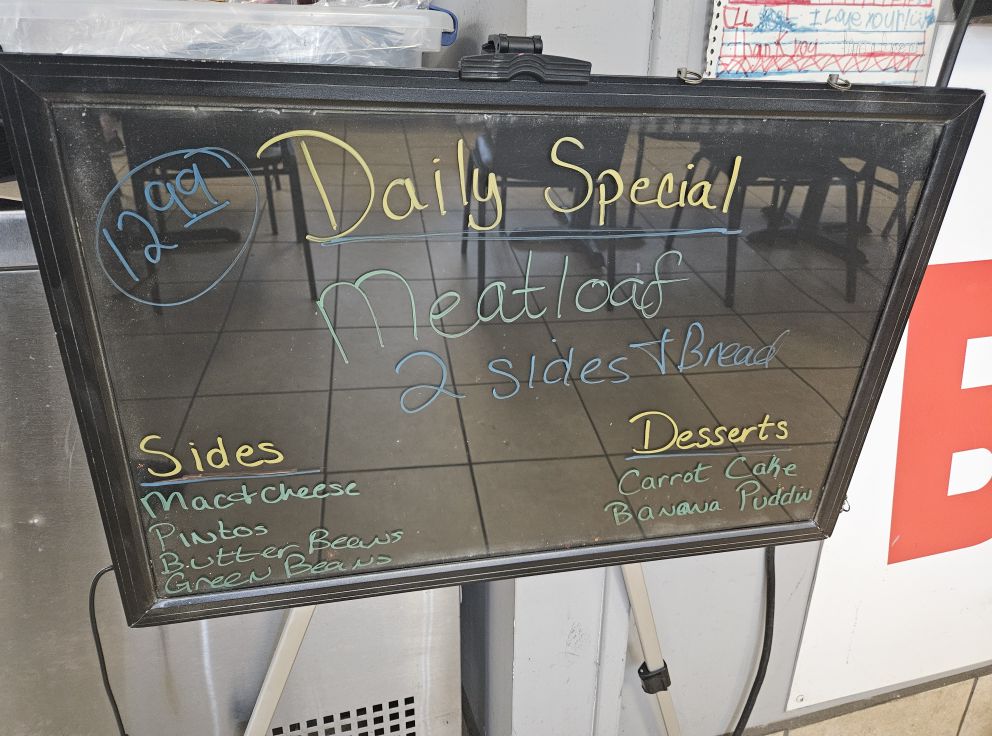 I Love your
Thank you
12 99
Daily Special
Meatloaf
2 sides + Bread
Sides
Mac+cheese
Pintos
Butter Beans
Green Beans
Desserts
Carrot Cake
Banana Puddin